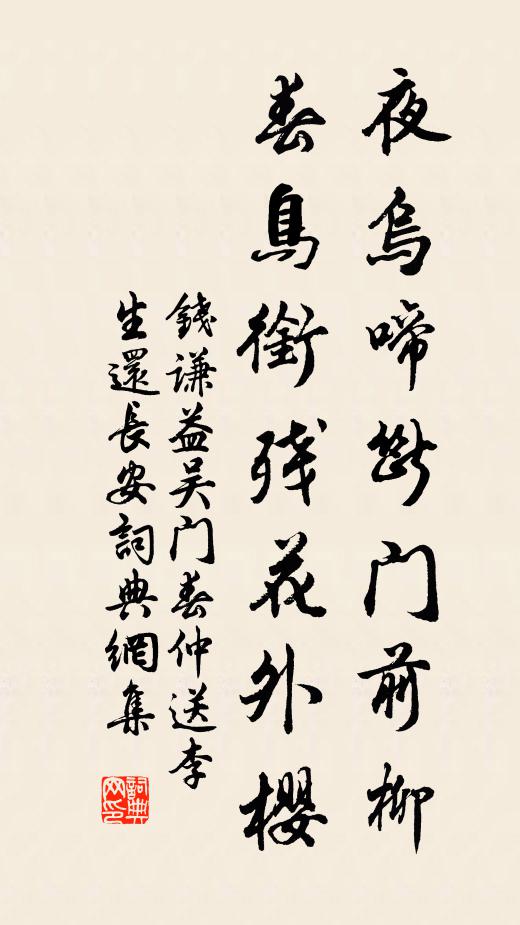 夜乌啼断门前柳
春鸟衔残花外樱
錢谦益吴门春仲送李
生還長安詞典網集
詞典
网印